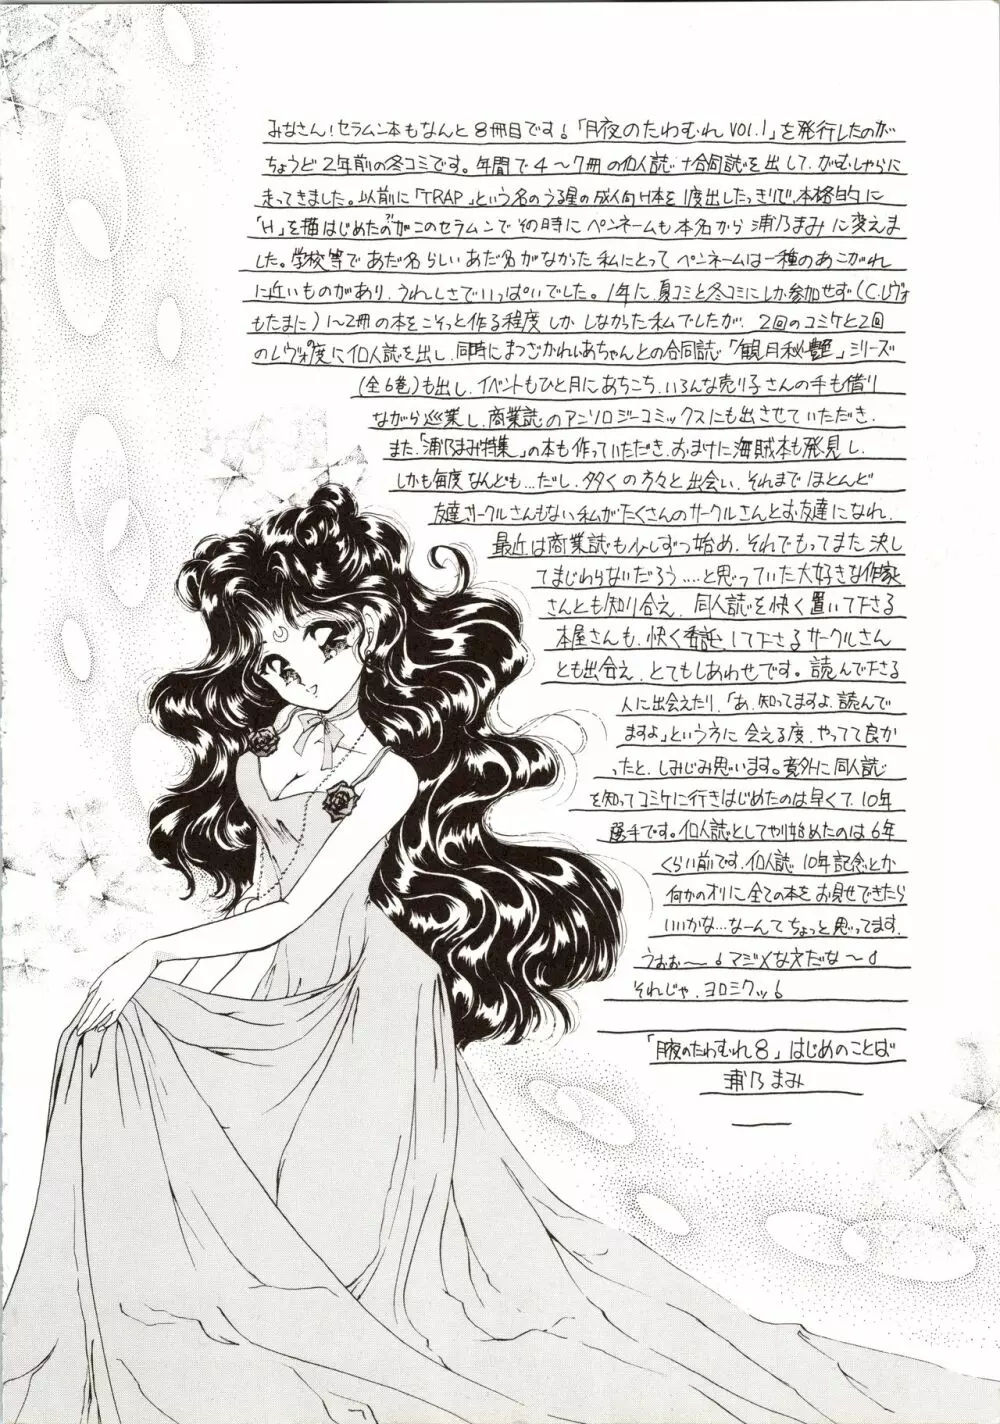 みなさん!セラムン本もなんと8冊目です!「月夜のたわむれVOL.1」を発行したのが
ちょうど2年前の冬コミです。年間で4〜7冊の個人誌+合同誌を出して、がむしゃらに
走ってきました。以前に「TRAP」という名のうる星の成人向H本を1度出したっきりで、本格的に
「H」を描はじめたのがこのセラムンでその時にペンネームも本名から浦乃まみに変えま
した。学校等であだ名らしいあだ名がなかった私にとってペンネームは一種のあこがれ
に近いものがあり、うれしさでいっぱいでした。1年に、夏コミと冬コミにしか参加せず(C.レヴォ
もたまに)1〜2冊の本をこそっと作る程度しかしなかった私でしたが、2回のコミケと2回
のレヴォ度に個人誌を出し、同時にまつざかれいあちゃんとの合同誌「観月秘艶」シリーズ
(全6巻)も出し、イベントもひと月にあちこち、いろんな売り子さんの手も借り
ながら巡業し、商業誌のアンソロジーコミックスにも出させていただき、
また、「浦乃まみ特集」の本も作っていただき、おまけに海賊本も発見し、
しかも毎度なんども…だし、多くの方々と出会い、それまでほとんど
友達サークルさんもない私がたくさんのサークルさんとお友達になれ、
最近は商業誌も少しずつ始め、それでもってまた決し
てまじわらないだろう…と思っていた大好きな作家
さんとも知り合え、同人誌を快く置いて下さる
本屋さんも、快く委託して下さるサークルさん
とも出会え、とてもしあわせです。読んで下さる
人に出会えたり、「あ、知ってますよ、読んで
ますよ」という方に会える度、やってて良か
ったと、しみじみ思います。意外に同人誌
を知ってコミケに行きはじめたのは早くて、10年
選手です。個人誌としてやり始めたのは6年
くらい前です。個人誌10年記念とか
何かのオリに全ての本をお見せできたら
いいかな…なーんてちょっと思ってます。
うぉぉ〜!マジメな文だな〜!
それじゃ、ヨロミクッ!
「月夜のたわむれ8」はじめのことば
浦乃まみ